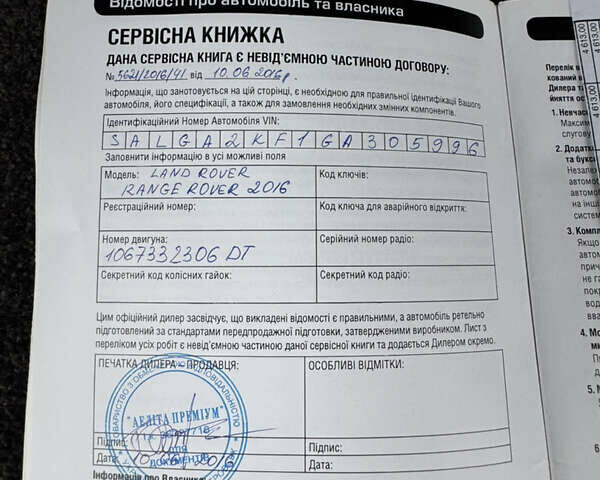 Відомості про автомобіль та власника
СЕРВІСНА КНИЖКА
ДАНА СЕРВІСНА КНИГА Є НЕВІД'ЄМНОЮ ЧАСТИНОЮ ДОГОВОРУ:
№ 5621/2016/41 від 10.06.2016р.
Інформація, що занотовується на цій сторінці, є необхідною для правильної ідентифікації Вашого
автомобіля, його специфікації, а також для замовлення необхідних змінних компонентів.
Ідентифікаційний Номер Автомобіля VIN:
S A L G A 2 K F 1 G A 3 0 5 9 9 6
Заповнити інформацію в усі можливі поля
Модель: LAND ROVER
RANGE ROVER 2016
Код ключів:
Реєстраційний номер:
Код ключа для аварійного відкриття:
Номер двигуна:
1067332306 DT
Серійний номер радіо:
Секретний код колісних гайок:
Секретний код радіо:
Цим офіційний дилер засвідчує, що викладені відомості є правильними, а автомобіль ретельно
підготовлений за стандартами передпродажної підготовки, затвердженими виробником. Лист з
переліком усіх робіт є невід'ємною частиною даної сервісної книги та додається Дилером окремо.
ПЕЧАТКА ДИЛЕРА – ПРОДАВЦЯ:
ОСОБЛИВІ ВІДМІТКИ:
"АЕЛІТА ПРЕМІУМ"
ДОКУМЕНТІВ
Підпис:
Дата:
Підпис:
Дата:
Інформація про Власника
4 613,00
4 613,00
Перелік
кований в
Дилера т
йняття ос
1. Невчас
Максим
слугову
2. Додатк
та букс
Незалеж
автомоб
автомоб
на інші
систем
3. Компл
Якщо
автом
прич
не га
пок
вод
вва
4. Мо
ми
5. М
6.